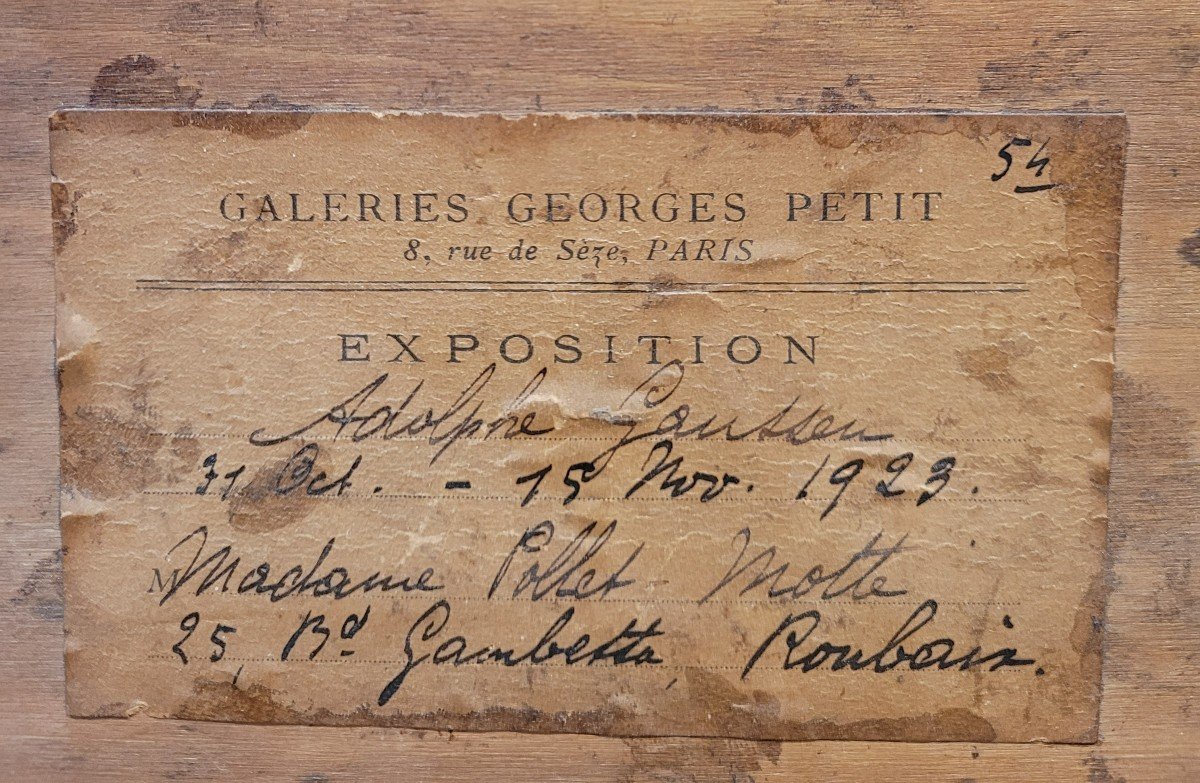 54
GALERIES GEORGES PETIT
8, rue de Sèze, PARIS
EXPOSITION
Adolphe Gaussen
31 Oct. - 15 Nov. 1923.
M Madame Pollet - Motte
25, Bd Gambetta, Roubaix.